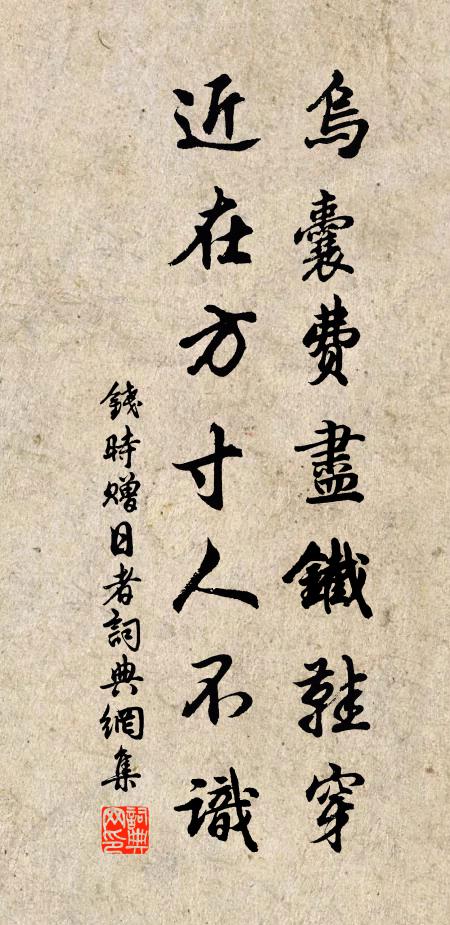 烏囊費盡鐵鞋穿
近在方寸人不識
錢時贈日者詞典網集
詞典網印